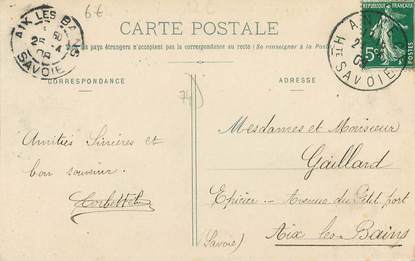 6€
CARTE POSTALE
pays étrangers n'acceptent pas la correspondance au recto (Se renseigner à la Poste).
CORRESPONDANCE
ADRESSE
AIX LES BAINS
25 -4
SAVOIE
REPUBLIQUE FRANÇAISE
5c
POSTES
Hte SAVOIE
74
Amitiés Sincères et
bon souvenir.
Mesdames et Monsieur
Gaillard
Epicier - Avenue du Petit port
Aix les Bains
(Savoie)